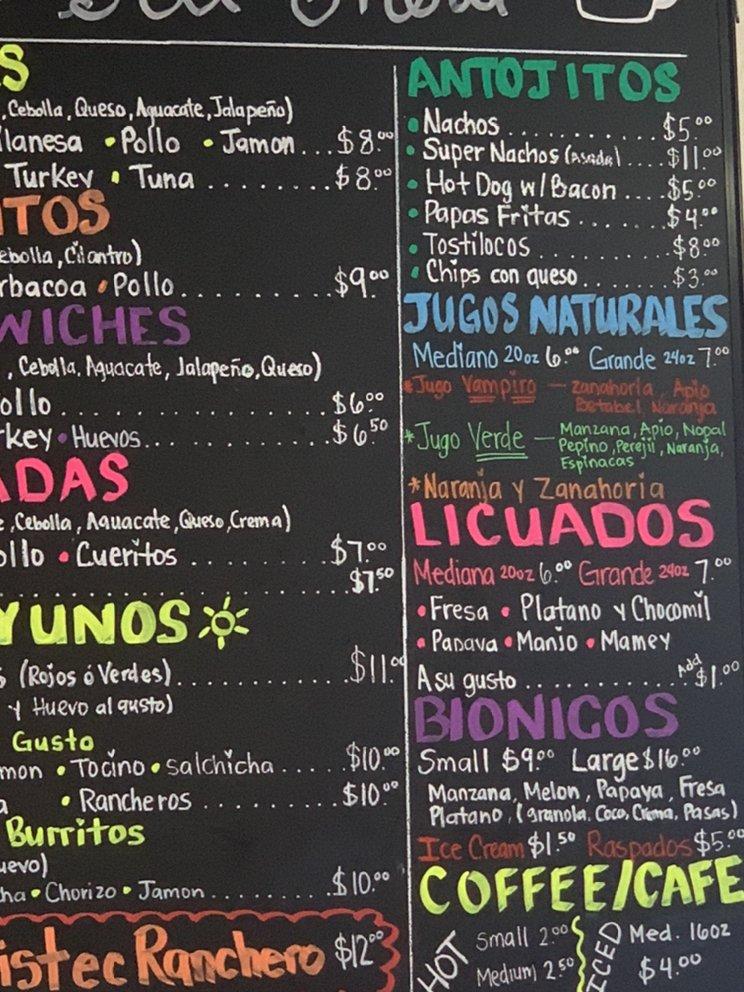 S
, Cebolla, Queso, Aguacate, Jalapeño)
lanesa • Pollo • Jamon... $8.00
Turkey • Tuna ........ $8.00
ITOS
ebolla, Cilantro)
rbacoa • Pollo......... $9.00
WICHES
, Cebolla, Aguacate, Jalapeño, Queso)
ollo ............... $6.00
rkey • Huevos.......... $6.50
ADAS
e, Cebolla, Aguacate, Queso, Crema)
ollo • Cueritos ........ $7.00
................. $7.50
YUNOS
s (Rojos ó Verdes)........... $11.00
y Huevo al gusto)
Gusto
mon • Tocino • Salchicha ..... $10.00
a • Rancheros ......... $10.00
Burritos
uevo)
cha • Chorizo • Jamon......... $10.00
istec Ranchero $12.00
ANTOJITOS
• Nachos ............ $5.00
• Super Nachos (Asada) .... $11.00
• Hot Dog w/Bacon .... $5.00
• Papas Fritas ....... $4.00
• Tostilocos .......... $8.00
• Chips con queso....... $3.00
JUGOS NATURALES
Mediano 20oz 6.00 Grande 24oz 7.00
*Jugo Vampiro — Zanahoria, Apio
Betabel, Naranja
*Jugo Verde — Manzana, Apio, Nopal
Pepino, Perejil, Naranja,
Espinacas
*Naranja y Zanahoria
LICUADOS
Mediana 20oz 6.00 Grande 24oz 7.00
• Fresa • Platano y Chocomil
• Papaya • Manjo • Mamey
A su gusto ............. Add $1.00
BIONICOS
Small $9.00 Large $16.00
Manzana, Melon, Papaya, Fresa
Platano, (granola, Coco, Crema, Pasas)
Ice Cream $1.50 Raspados $5.00
COFFEE/CAFE
HOT
Small 2.00
Medium 2.50
ICED
Med. 16oz
$4.00